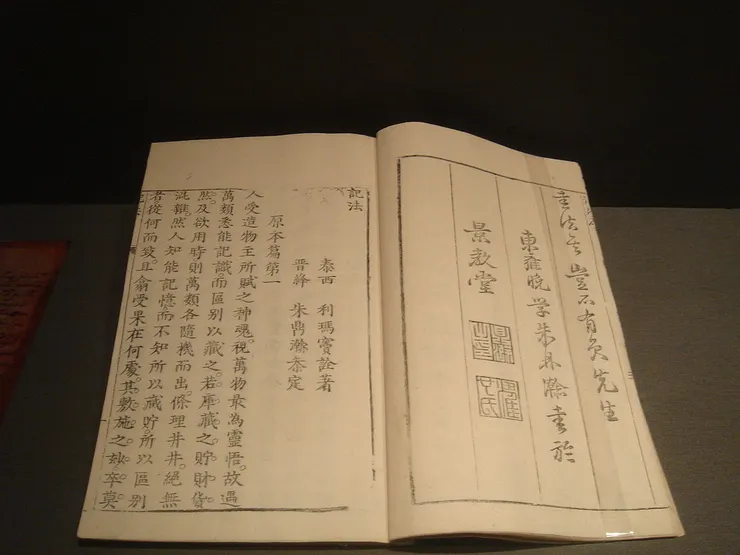 豈不有負先生
東雍晚学朱鼎瀚書於
景教堂
記法
泰西 利瑪竇詮著
晉絳 朱鼎瀚叅定
原本篇第一
人受造物主所賦之神魂。視萬物最為靈悟。故遇
萬類悉能記識。而區別以藏之。若庫藏之貯財貨
然。及欲用時。則萬類各隨機而出。條理井井。絕無
混雜。然人知能記憶。而不知所以藏貯。所以區別
者從何而發。且翕受果在何處。其敷施之妙。卒莫